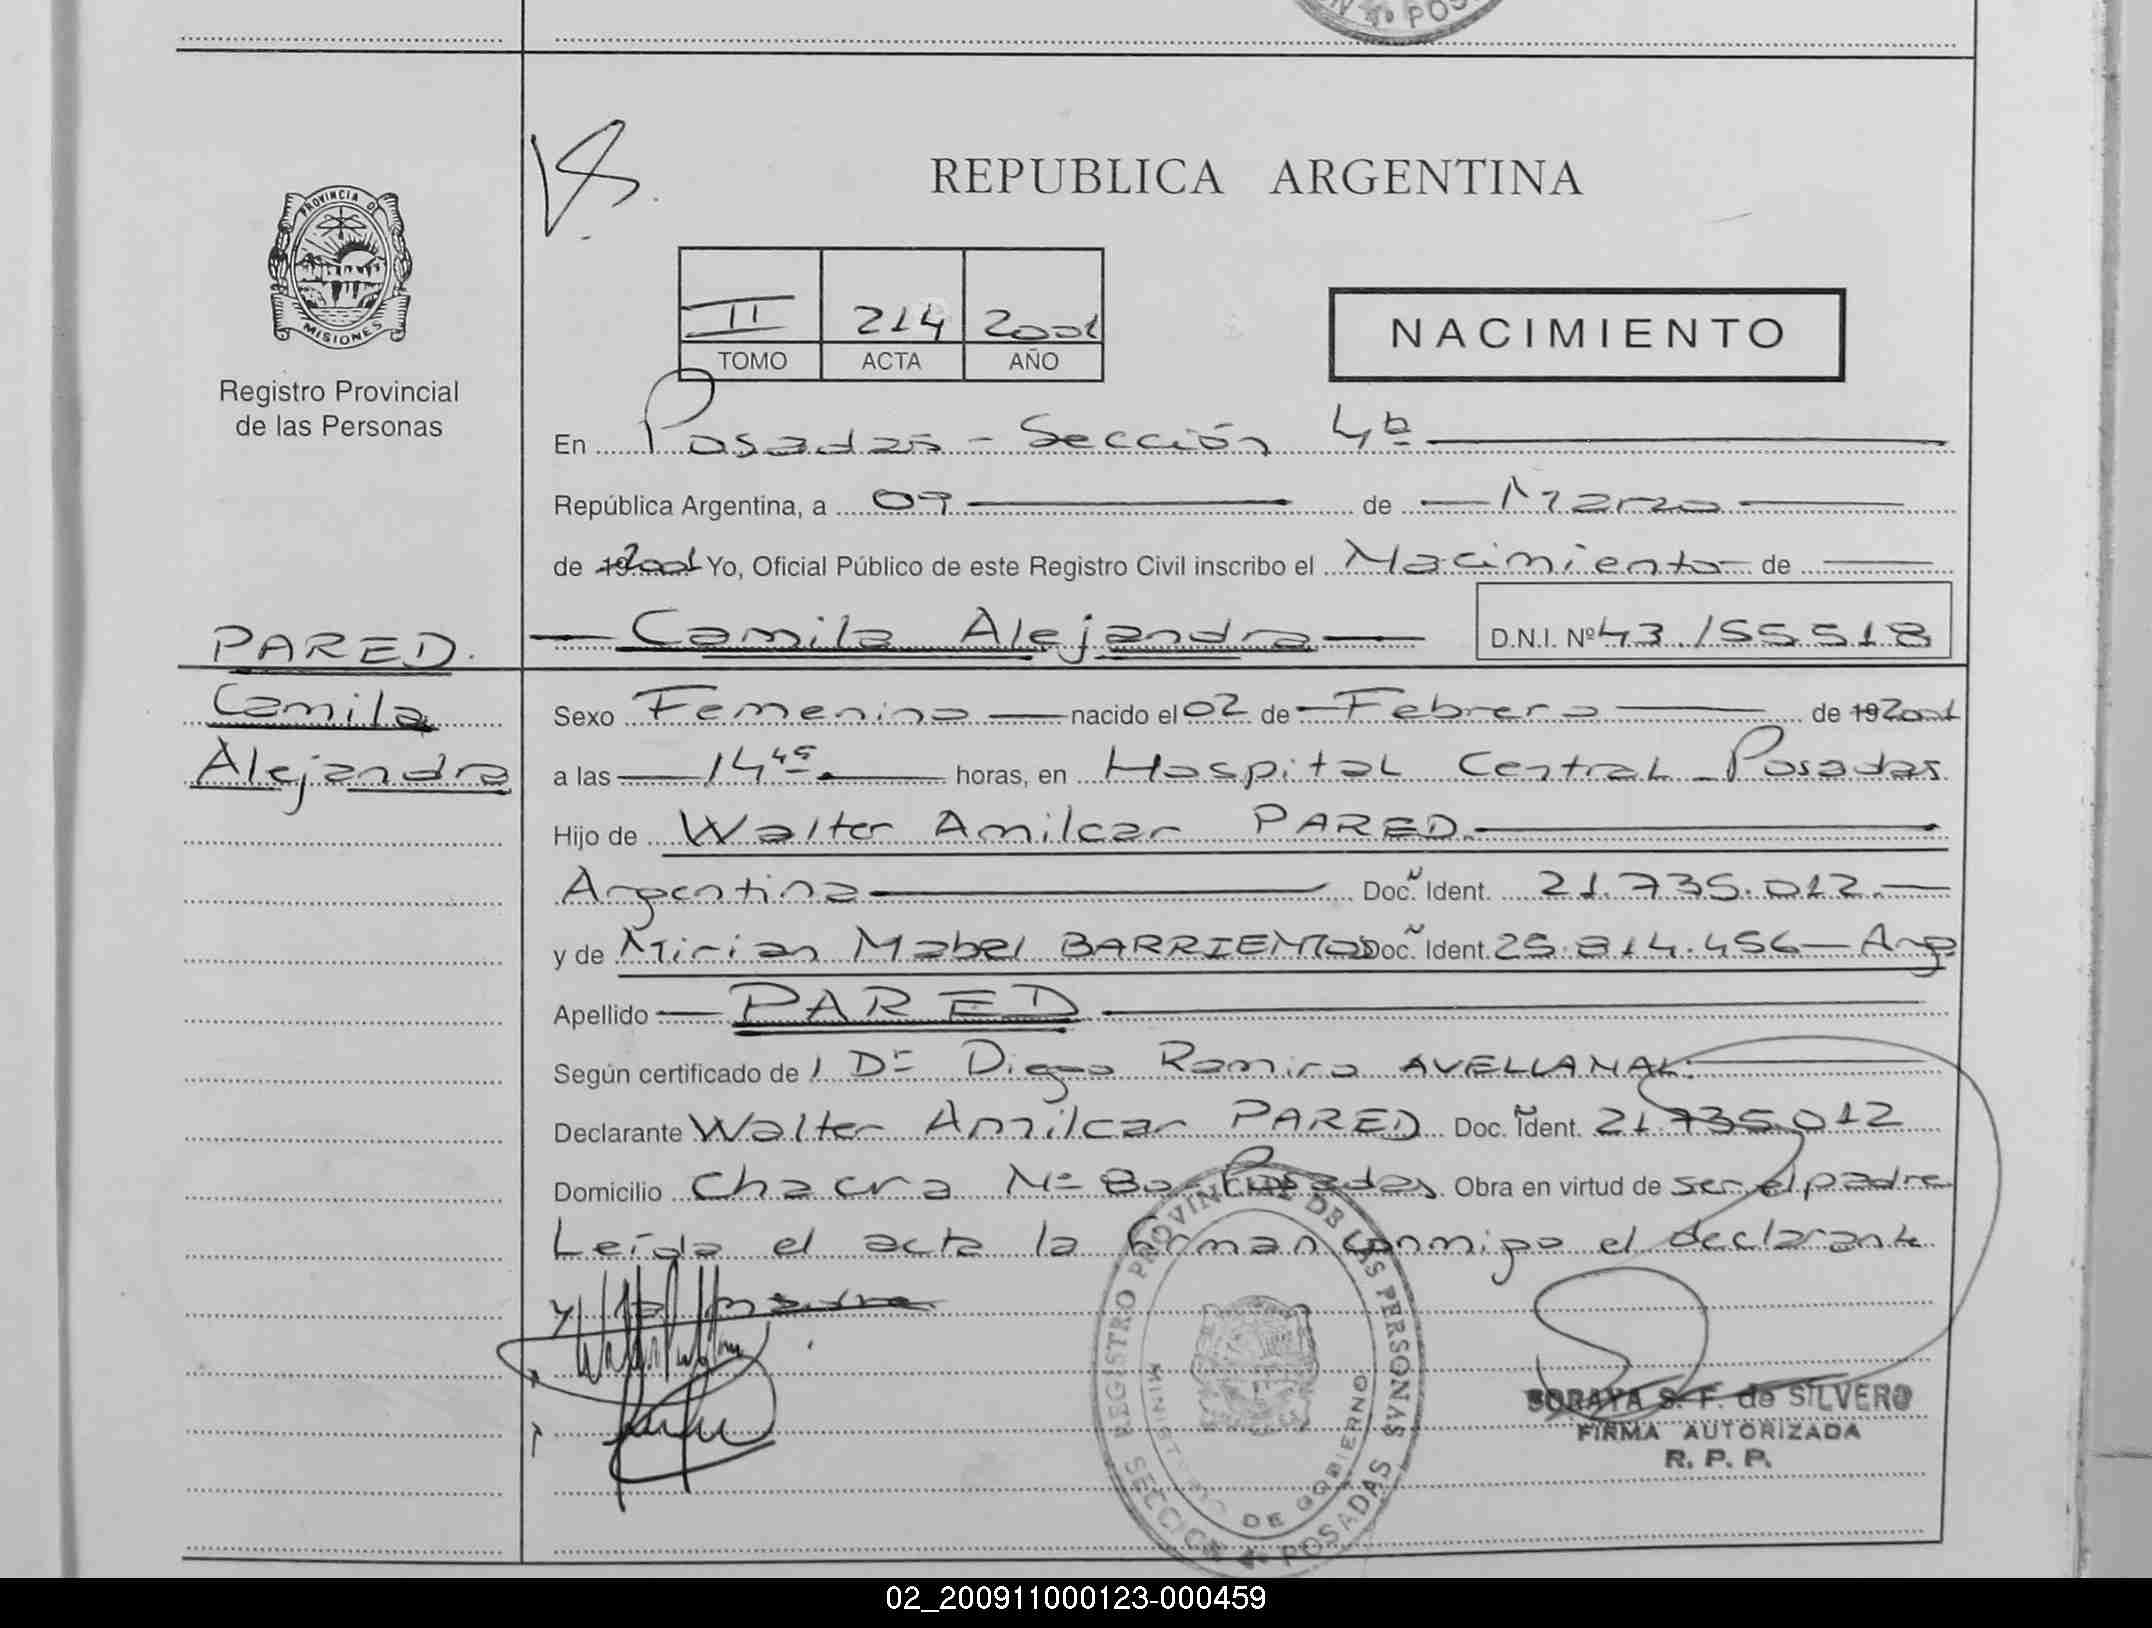 N 4º POS
REPUBLICA ARGENTINA
PROVINCIA DE
MISIONES
Registro Provincial
de las Personas
II 214 2001
TOMO ACTA AÑO
NACIMIENTO
En Posadas - Sección 4ª
República Argentina, a 09 de Marzo
de 192001 Yo, Oficial Público de este Registro Civil inscribo el Nacimiento de
Camila Alejandra D.N.I. Nº 43.155518
PARED.
Camila
Alejandra
Sexo Femenino nacido el 02 de Febrero de 192001
a las 14 45 horas, en Hospital Central - Posadas
Hijo de Walter Amilcar PARED.
Argentina Doc. Ident. 21.735.012.
y de Mirian Mabel BARRIENTOS Doc. Ident. 25.814.456 - Arg
Apellido PARED
Según certificado de l Dr Diego Ramiro AVELLANAL.
Declarante Walter Amilcar PARED Doc. Ident. 21.735.012
Domicilio Chacra Nº 80 - Posadas Obra en virtud de ser el padre
Leída el acta la firman conmigo el declarante
y la madre
REGISTRO PROVINCIAL DE LAS PERSONAS
MINISTERIO DE GOBIERNO
SECCION 4º POSADAS
SORAYA S. F. de SILVERO
FIRMA AUTORIZADA
R. P. P.
02_200911000123-000459